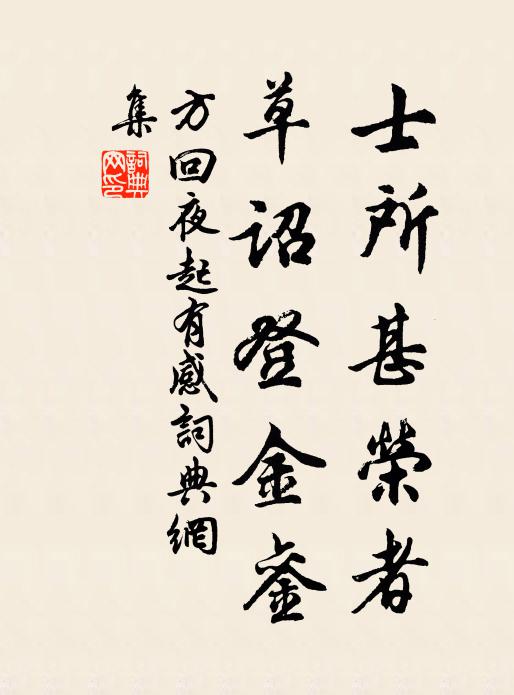 士所甚榮者
草詔登金鑾
方回夜起有感詞典網
集
詞典
网印